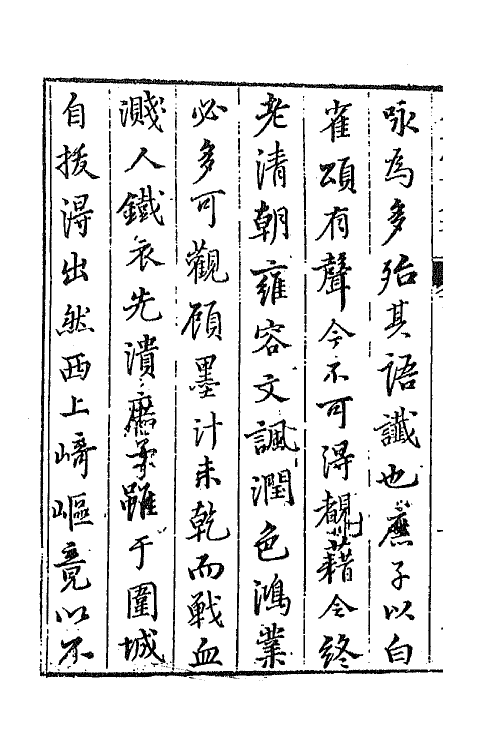 咏為多殆其語讖也薦子以白
雀頌有聲今不可得覩藉令終
老清朝雍容文諷潤色鴻業
必多可觀顧墨汁未乾而戰血
濺人鐵衣先潰薦子雖于圍城
自拔得出然西上崎嶇竟以不